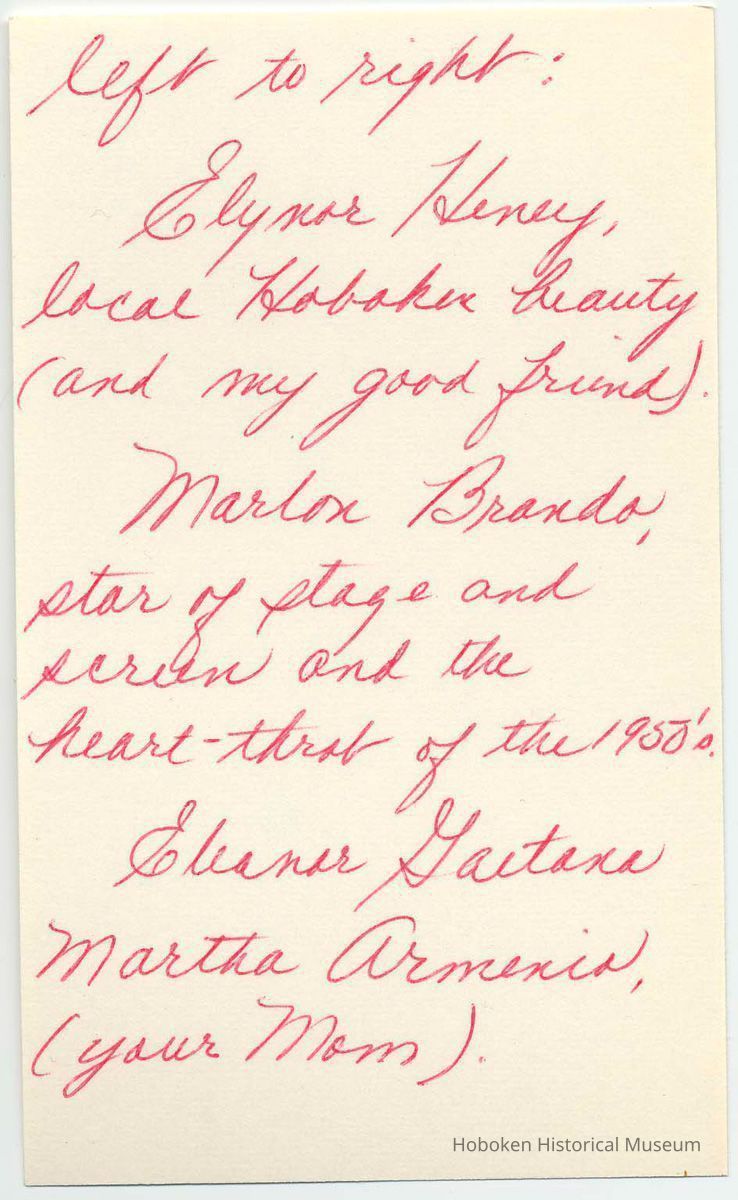 left to right:
Elynor Heney,
local Hoboken beauty
(and my good friend).
Marlon Brando,
star of stage and
screen and the
heart-throb of the 1950's.
Eleanor Gaetana
Martha Armenio,
(your Mom).
Hoboken Historical Museum